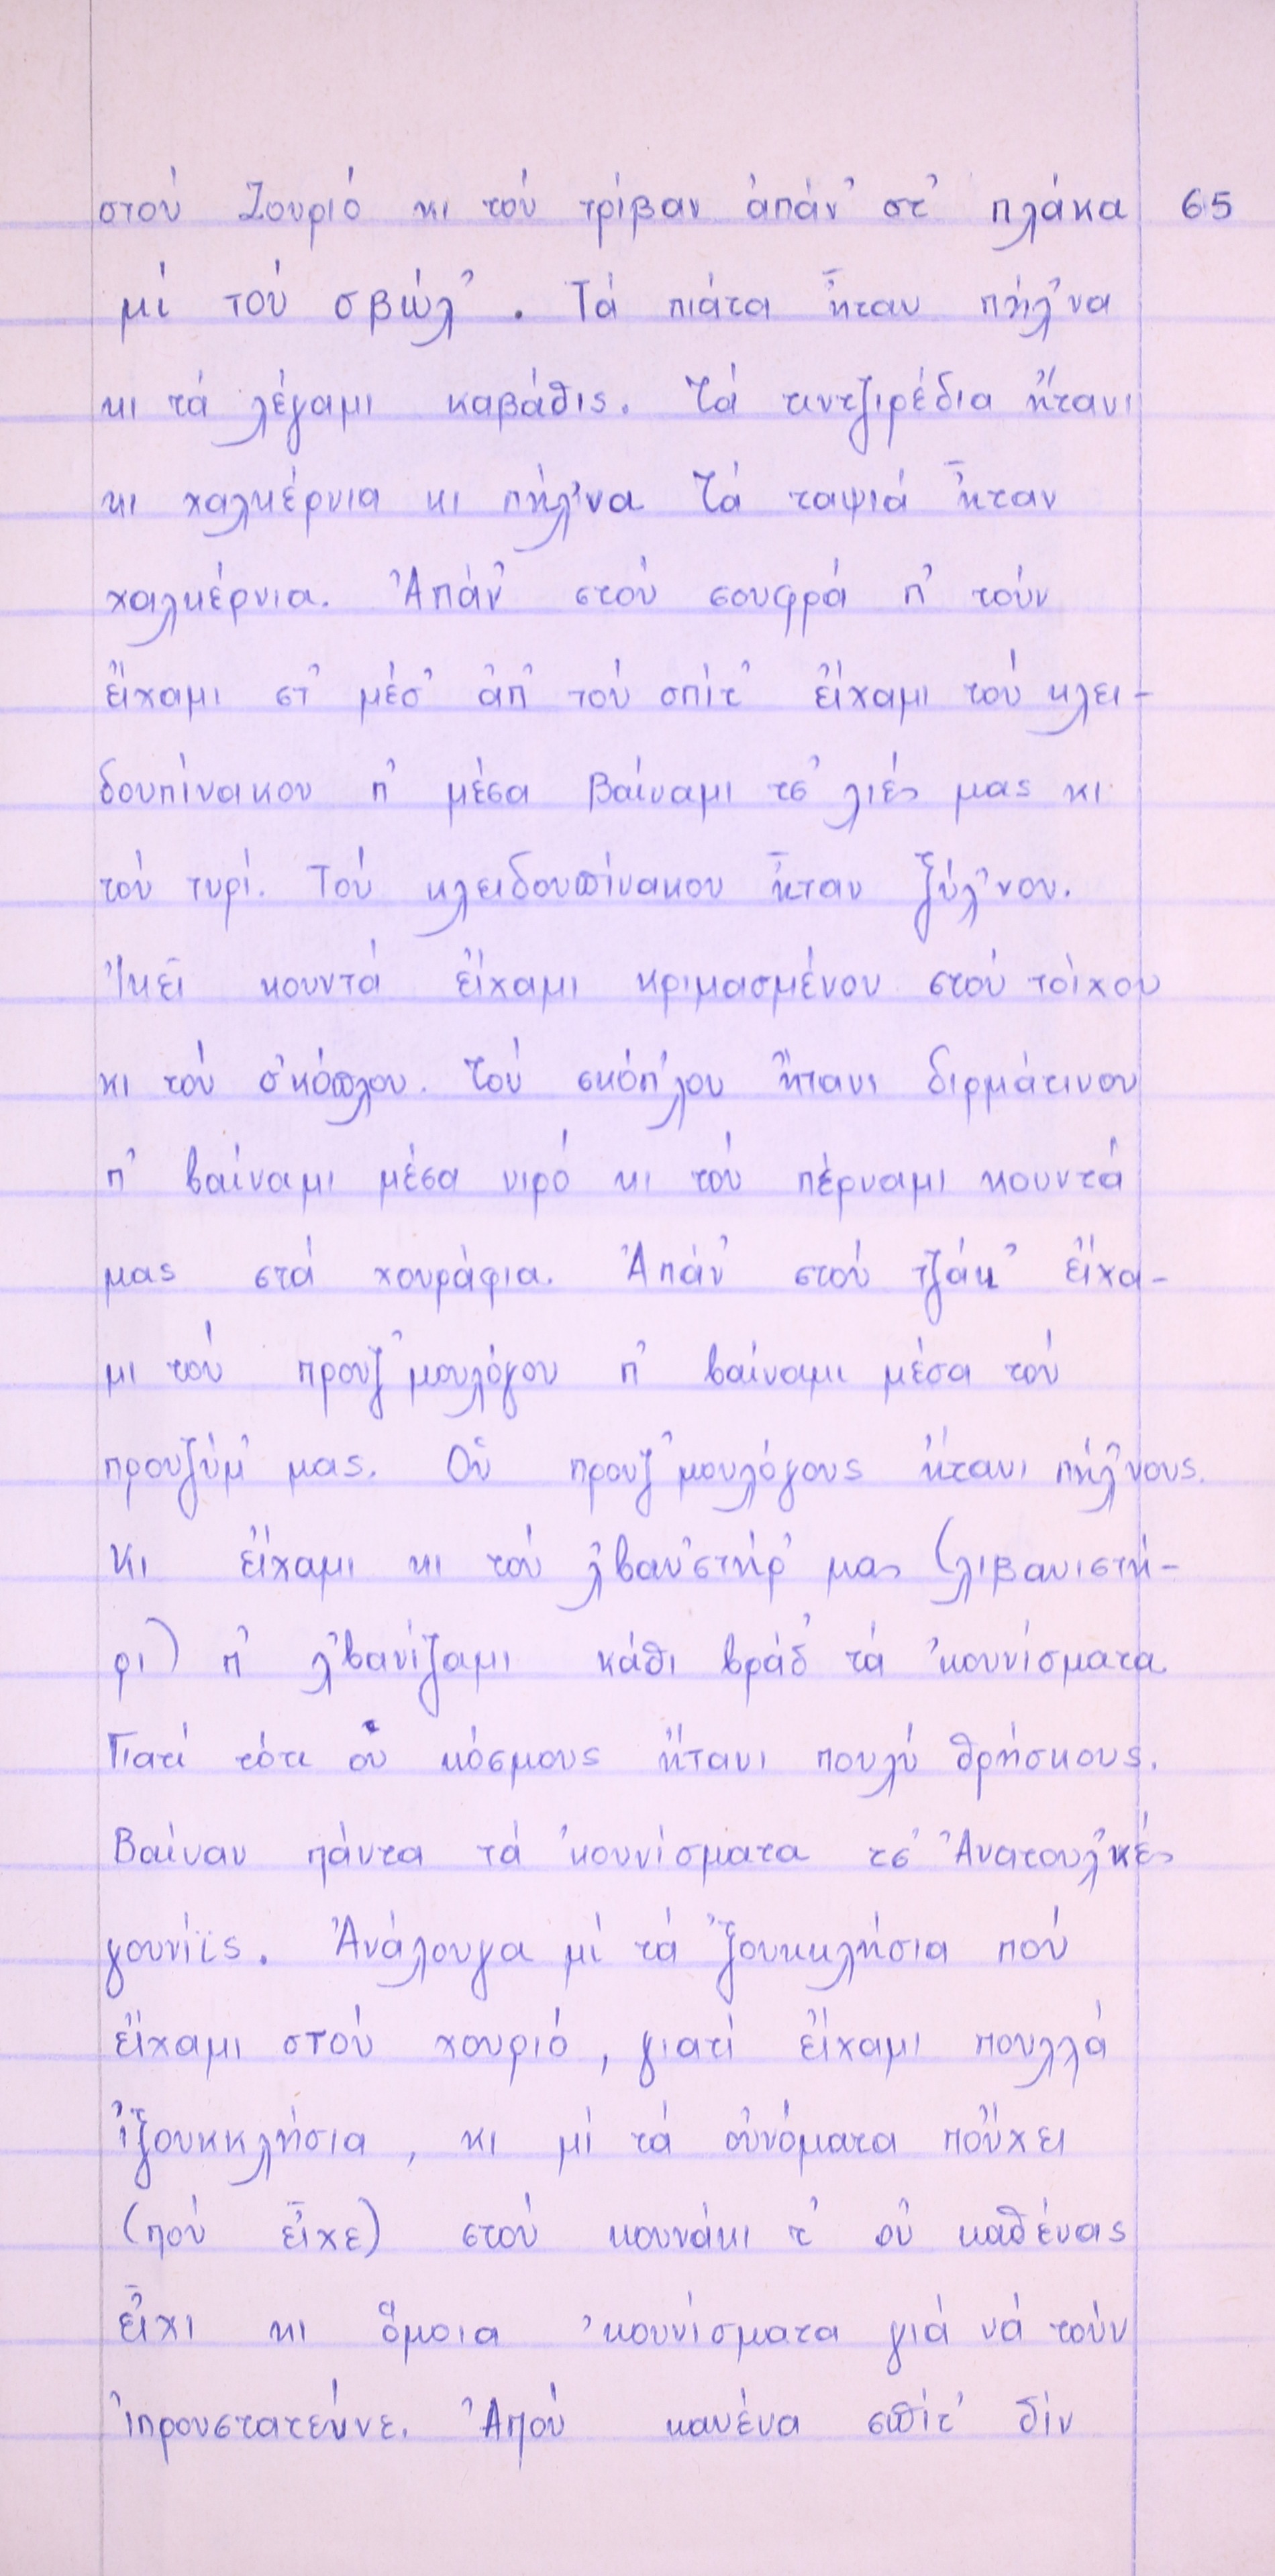 στού Ζουριό κι τού τρίβαν ἀπάν' στ' πλάκα 65
μί τού σβώλ'. Τά πιάτα ἦταν πήλ'να
κι τά λέγαμι καβάθις. Τά τιντζιρέδια ἤτανι
κι χαλκέρνια κι πήλ'να Τά ταψιά ἦταν
χαλκέρνια. Ἀπάν' στού σουφρά π' τούν
εἴχαμι στ' μέσ' ἀπ' τού σπίτ' εἴχαμι τού κλει-
δουπίνακου π' μέσα βαίναμι τσ' λιές μας κι
τού τυρί. Τού κλειδουπίνακου ἦταν ξύλ'νου.
Ἰκεῖ κουντά εἴχαμι κριμασμένου στού τοίχου
κι τού σ'κόπλου. Τού σκόπ'λου ἤτανι διρμάτινου
π' βαίναμι μέσα νιρό κι τού πέρναμι κουντά
μας στά χουράφια. Ἀπάν' στού τζάκ' εἴχα-
μι τού προυζ'μουλόγου π' βαίναμι μέσα τού
προυζύμ' μας. Οὑ προυζ'μουλόγους ἤτανι πήλ'νους.
Κι εἴχαμι κι τού λ'βαν'στήρ' μας (λιβανιστή-
ρι) π' λ'βανίζαμι κάθι βράδ' τά 'κουνίσματα
Γιατί τότι οὑ κόσμους ἤτανι πουλύ θρήσκους.
Βαίναν πάντα τά 'κουνίσματα τσ' Ἀνατουλ'κές
γουνίϊς. Ἀνάλουγα μί τά 'ξουκκλήσια πού
εἴχαμι στού χουριό, γιατί εἴχαμι πουλλά
ἰξουκκλήσια, κι μί τά οὐνόματα ποὔχει
(πού εἶχε) στού κουνάκι τ' οὑ καθένας
εἶχι κι ὅμοια 'κουνίσματα γιά νά τούν
ἰπρουστατεύνε. Ἀπού κανένα σπίτ' δίν